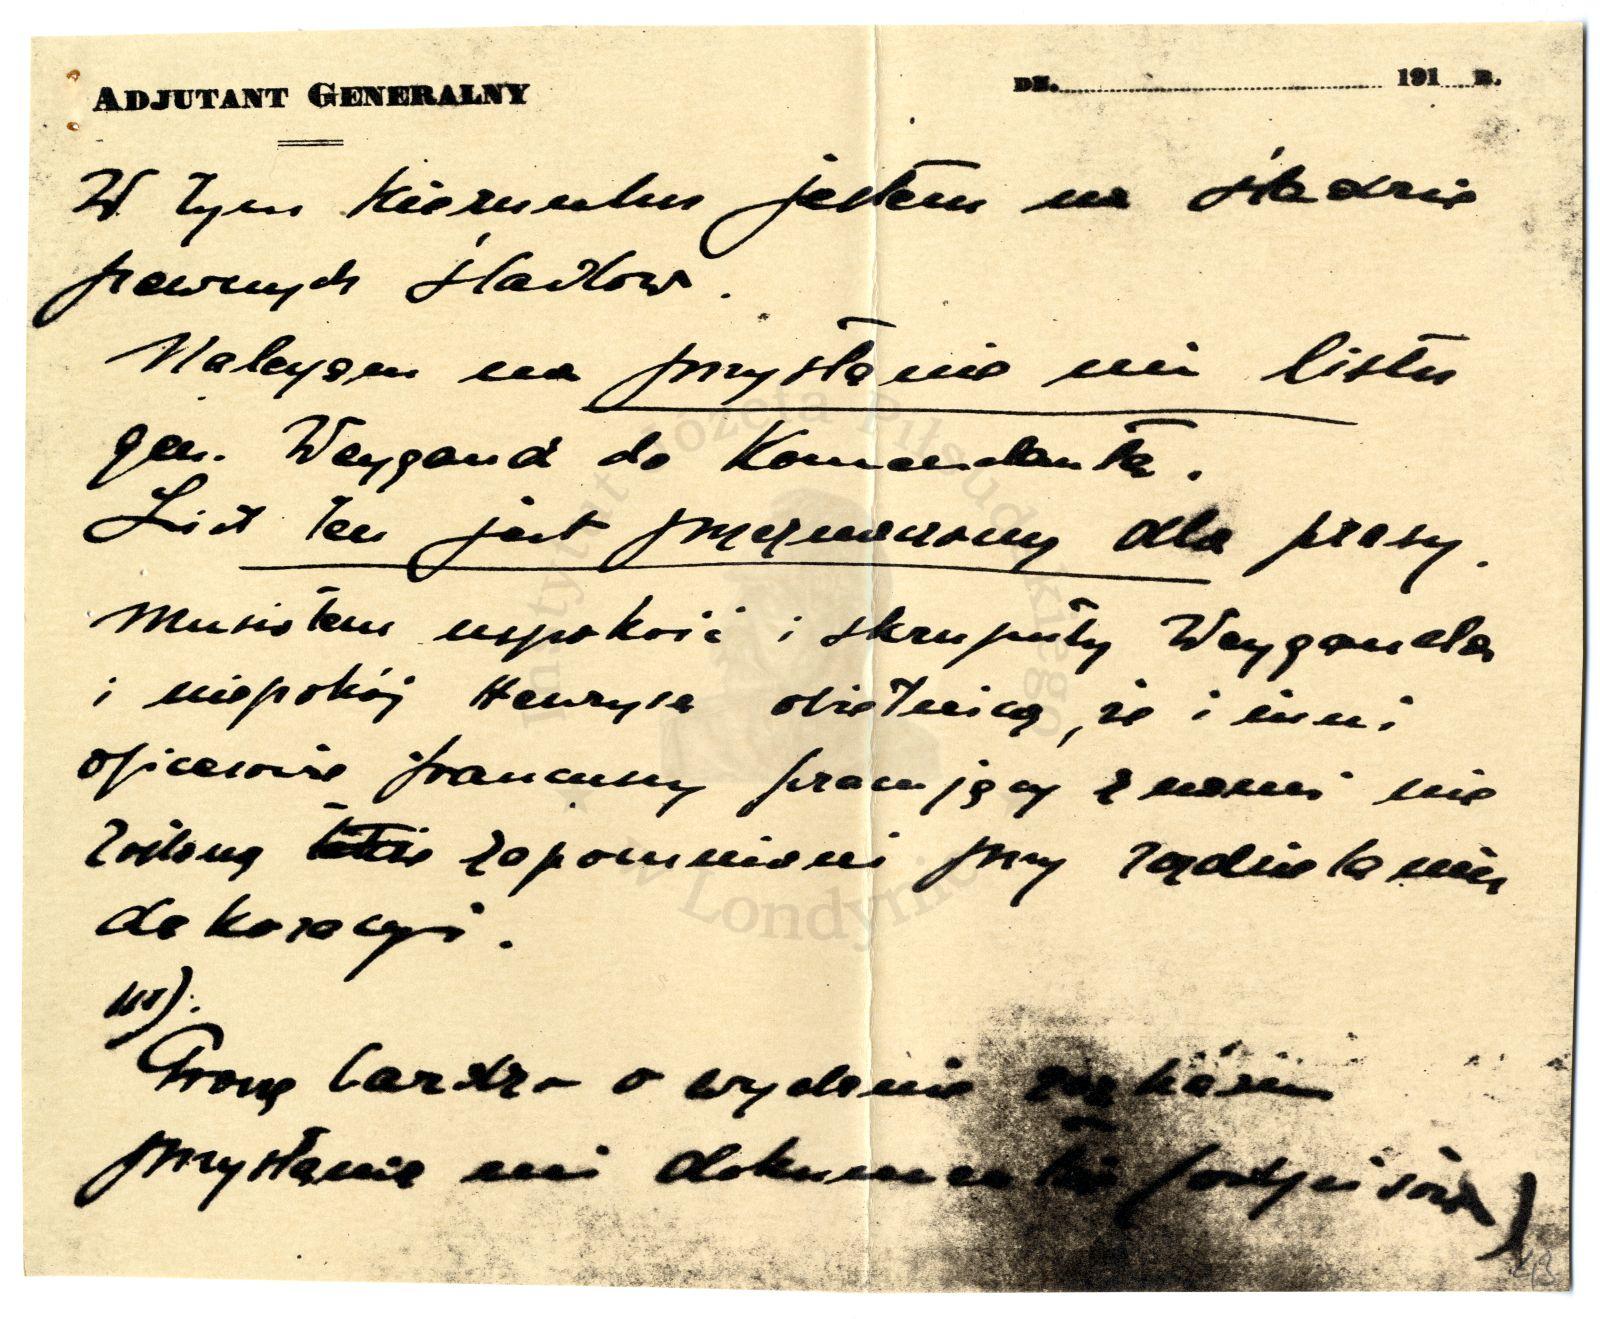 ADJUTANT GENERALNY
DN. 191 R.
W tym kierunku jestem na śladzie
pewnych śladów.
Nalegam na przysłanie mi listu
gen. Weygand do Komendanta.
List ten jest przeznaczony dla prasy.
Musiałem uspokoić i skrupuły Weyganda
i niepokój Henrysa obietnicą, że i inni
oficerowie francuscy pracujący z nami nie
zostaną zapomniani przy rozdzielaniu
dekoracyi.
III).
Proszę bardzo o wydanie rozkazu
przysłania mi dokumentów (odpisów)
Instytut Józefa Piłsudskiego
w Londynie